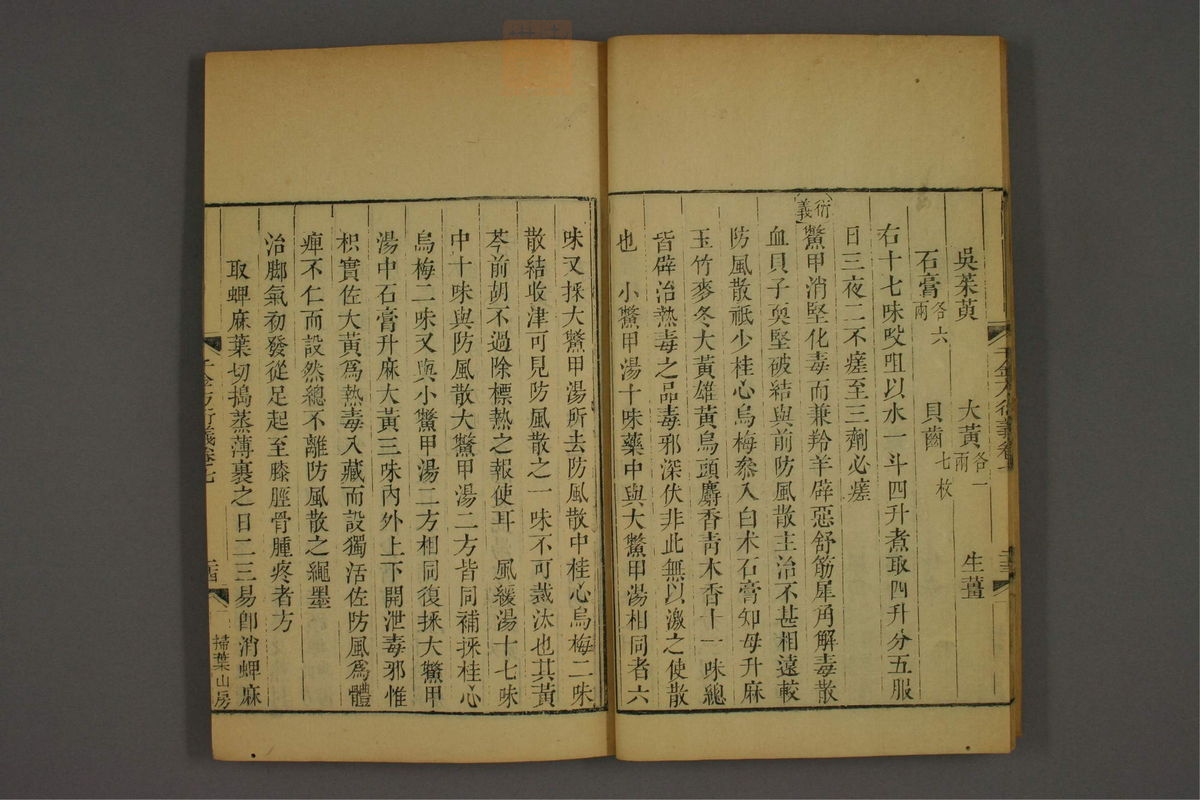 吳茱萸　大黃各一兩　生薑
石膏各六兩　貝齒七枚
右十七味㕮咀以水一斗四升煮取四升分五服
日三夜二不瘥至三劑必瘥
衍義 鱉甲消堅化毒而兼羚羊辟惡舒筋犀角解毒散
血貝子耎堅破結與前防風散主治不甚相遠較
防風散祇少桂心烏梅叅入白朮石膏知母升麻
玉竹麥冬大黃雄黃烏頭麝香靑木香十一味總
皆辟治熱毒之品毒邪深伏非此無以激之使散
也　小鱉甲湯十味藥中與大鱉甲湯相同者六
味又採大鱉甲湯所去防風散中桂心烏梅二味
散結收津可見防風散之一味不可裁汰也其黃
芩前胡不過除標熱之報使耳　風緩湯十七味
中十味與防風散大鱉甲湯二方皆同補採桂心
烏梅二味又與小鱉甲湯二方相同復採大鱉甲
湯中石膏升麻大黃三味內外上下開泄毒邪惟
枳實佐大黃爲熱毒入藏而設獨活佐防風爲體
痺不仁而設然總不離防風散之繩墨
治脚氣初發從足起至膝脛骨腫疼者方
取蜱麻葉切搗蒸薄裹之日二三易卽消蜱麻
千金方衍義卷七
掃葉山房